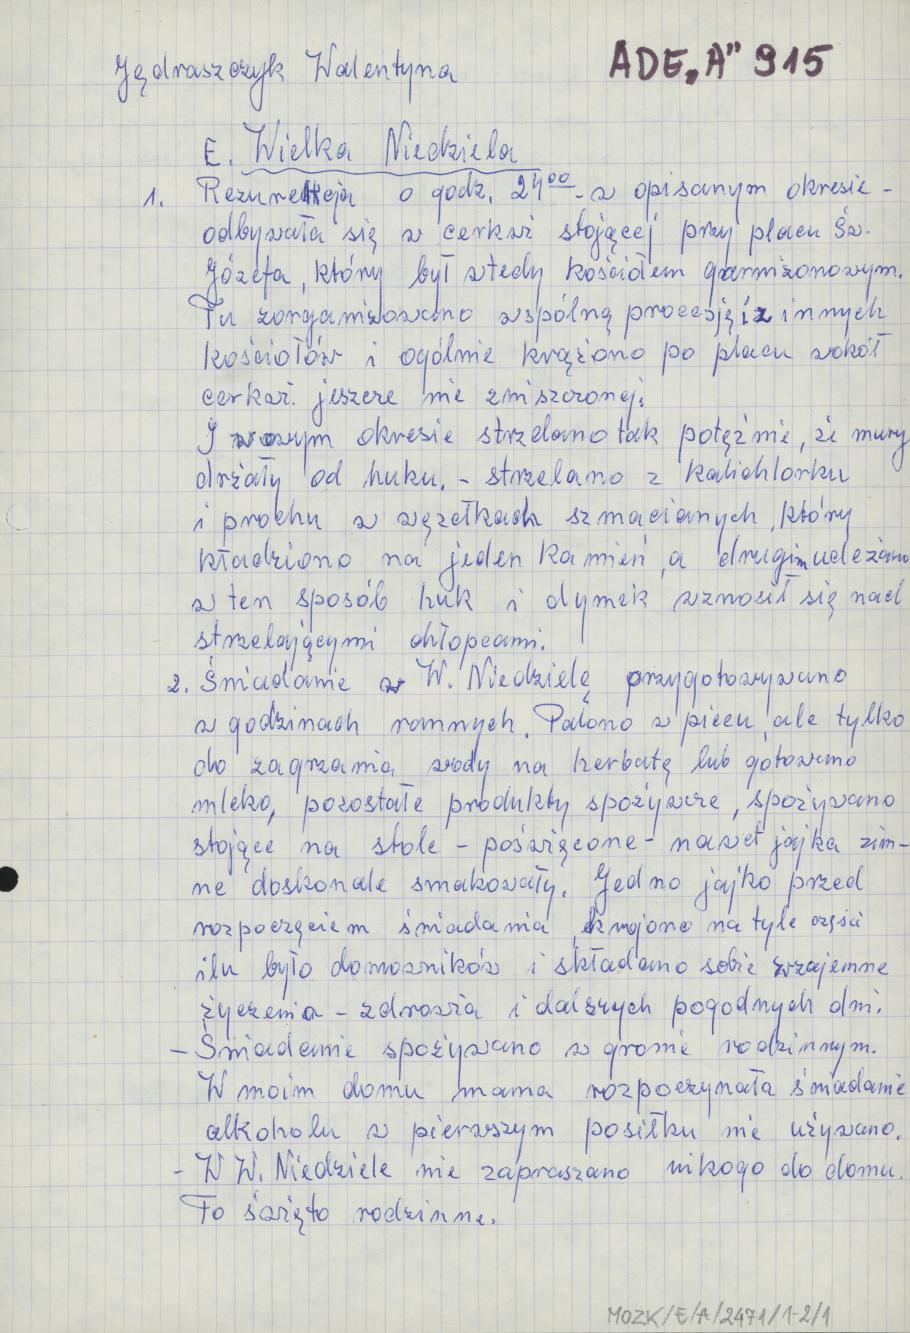 Jędraszczyk Walentyna
ADE „A" 915
E. Wielka Niedziela
1. Rezurekcja o godz. 24⁰⁰ - w opisanym okresie -
odbywała się w cerkwi stojącej przy placu Św.
Józefa, który był wtedy kościołem garnizonowym.
Tu zorganizowano wspólną procesję i z innych
kościołów i ogólnie krążono po placu wokół
cerkwi jeszcze nie zniszczonej.
I w owym okresie strzelano tak potężnie, że mury
drżały od huku. - strzelano z kalichlorku
i prochu w węzełkach szmacianych, który
kładziono na jeden kamień, a drugim uderzano
w ten sposób huk i dymek wznosił się nad
strzelającymi chłopcami.
2. Śniadanie w W. Niedzielę przygotowywano
w godzinach rannych. Palono w piecu, ale tylko
do zagrzania wody na herbatę lub gotowano
mleko, pozostałe produkty spożywcze, spożywano
stojące na stole - poświęcone - nawet jajka zim-
ne doskonale smakowały. Jedno jajko przed
rozpoczęciem śniadania krojono na tyle części
ilu było domowników i składano sobie wzajemne
życzenia - zdrowia i dalszych pogodnych dni.
- Śniadanie spożywano w gronie rodzinnym.
W moim domu mama rozpoczynała śniadanie
alkoholu w pierwszym posiłku nie używano.
- W W. Niedziele nie zapraszano nikogo do domu.
To święto rodzinne.
MOZK/E/A/2471/1-2/1